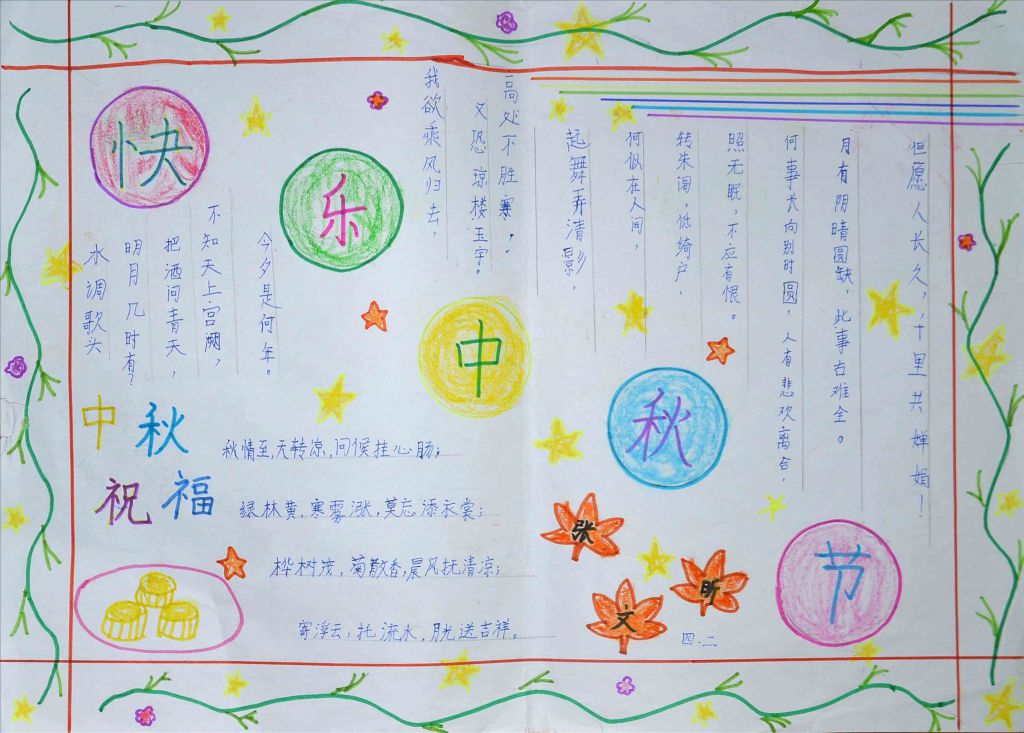 快乐中秋节
水调歌头
明月几时有?
把酒问青天,
不知天上宫阙,
今夕是何年。
我欲乘风归去,
又恐琼楼玉宇。
高处不胜寒,.
起舞弄清影,
何似在人间,
转朱阁,低绮户,
照无眠,不应有恨。
何事长向别时圆,人有悲欢离合,
月有阴晴圆缺,此事古难全。
但愿人长久,千里共婵娟!
中秋
祝福
秋情至,天转凉,问候挂心肠;
绿林黄,寒雾涨,莫忘添衣裳;
桦树茂,菊散香;晨风抚清凉;
寄浮云;托流水,月光送吉祥。
张文昕
四.二